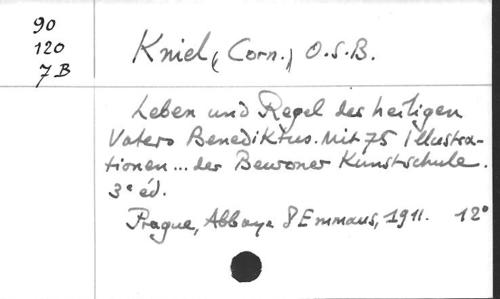 90
120
7B
Kniel (Corn.) O.S.B.
Leben und Regel des heiligen
Vaters Benediktus. Mit 75 Illustra-
tionen... der Beuroner Kunstschule.
3e éd.
Prague, Abbaye d'Emmaus, 1911. 12º